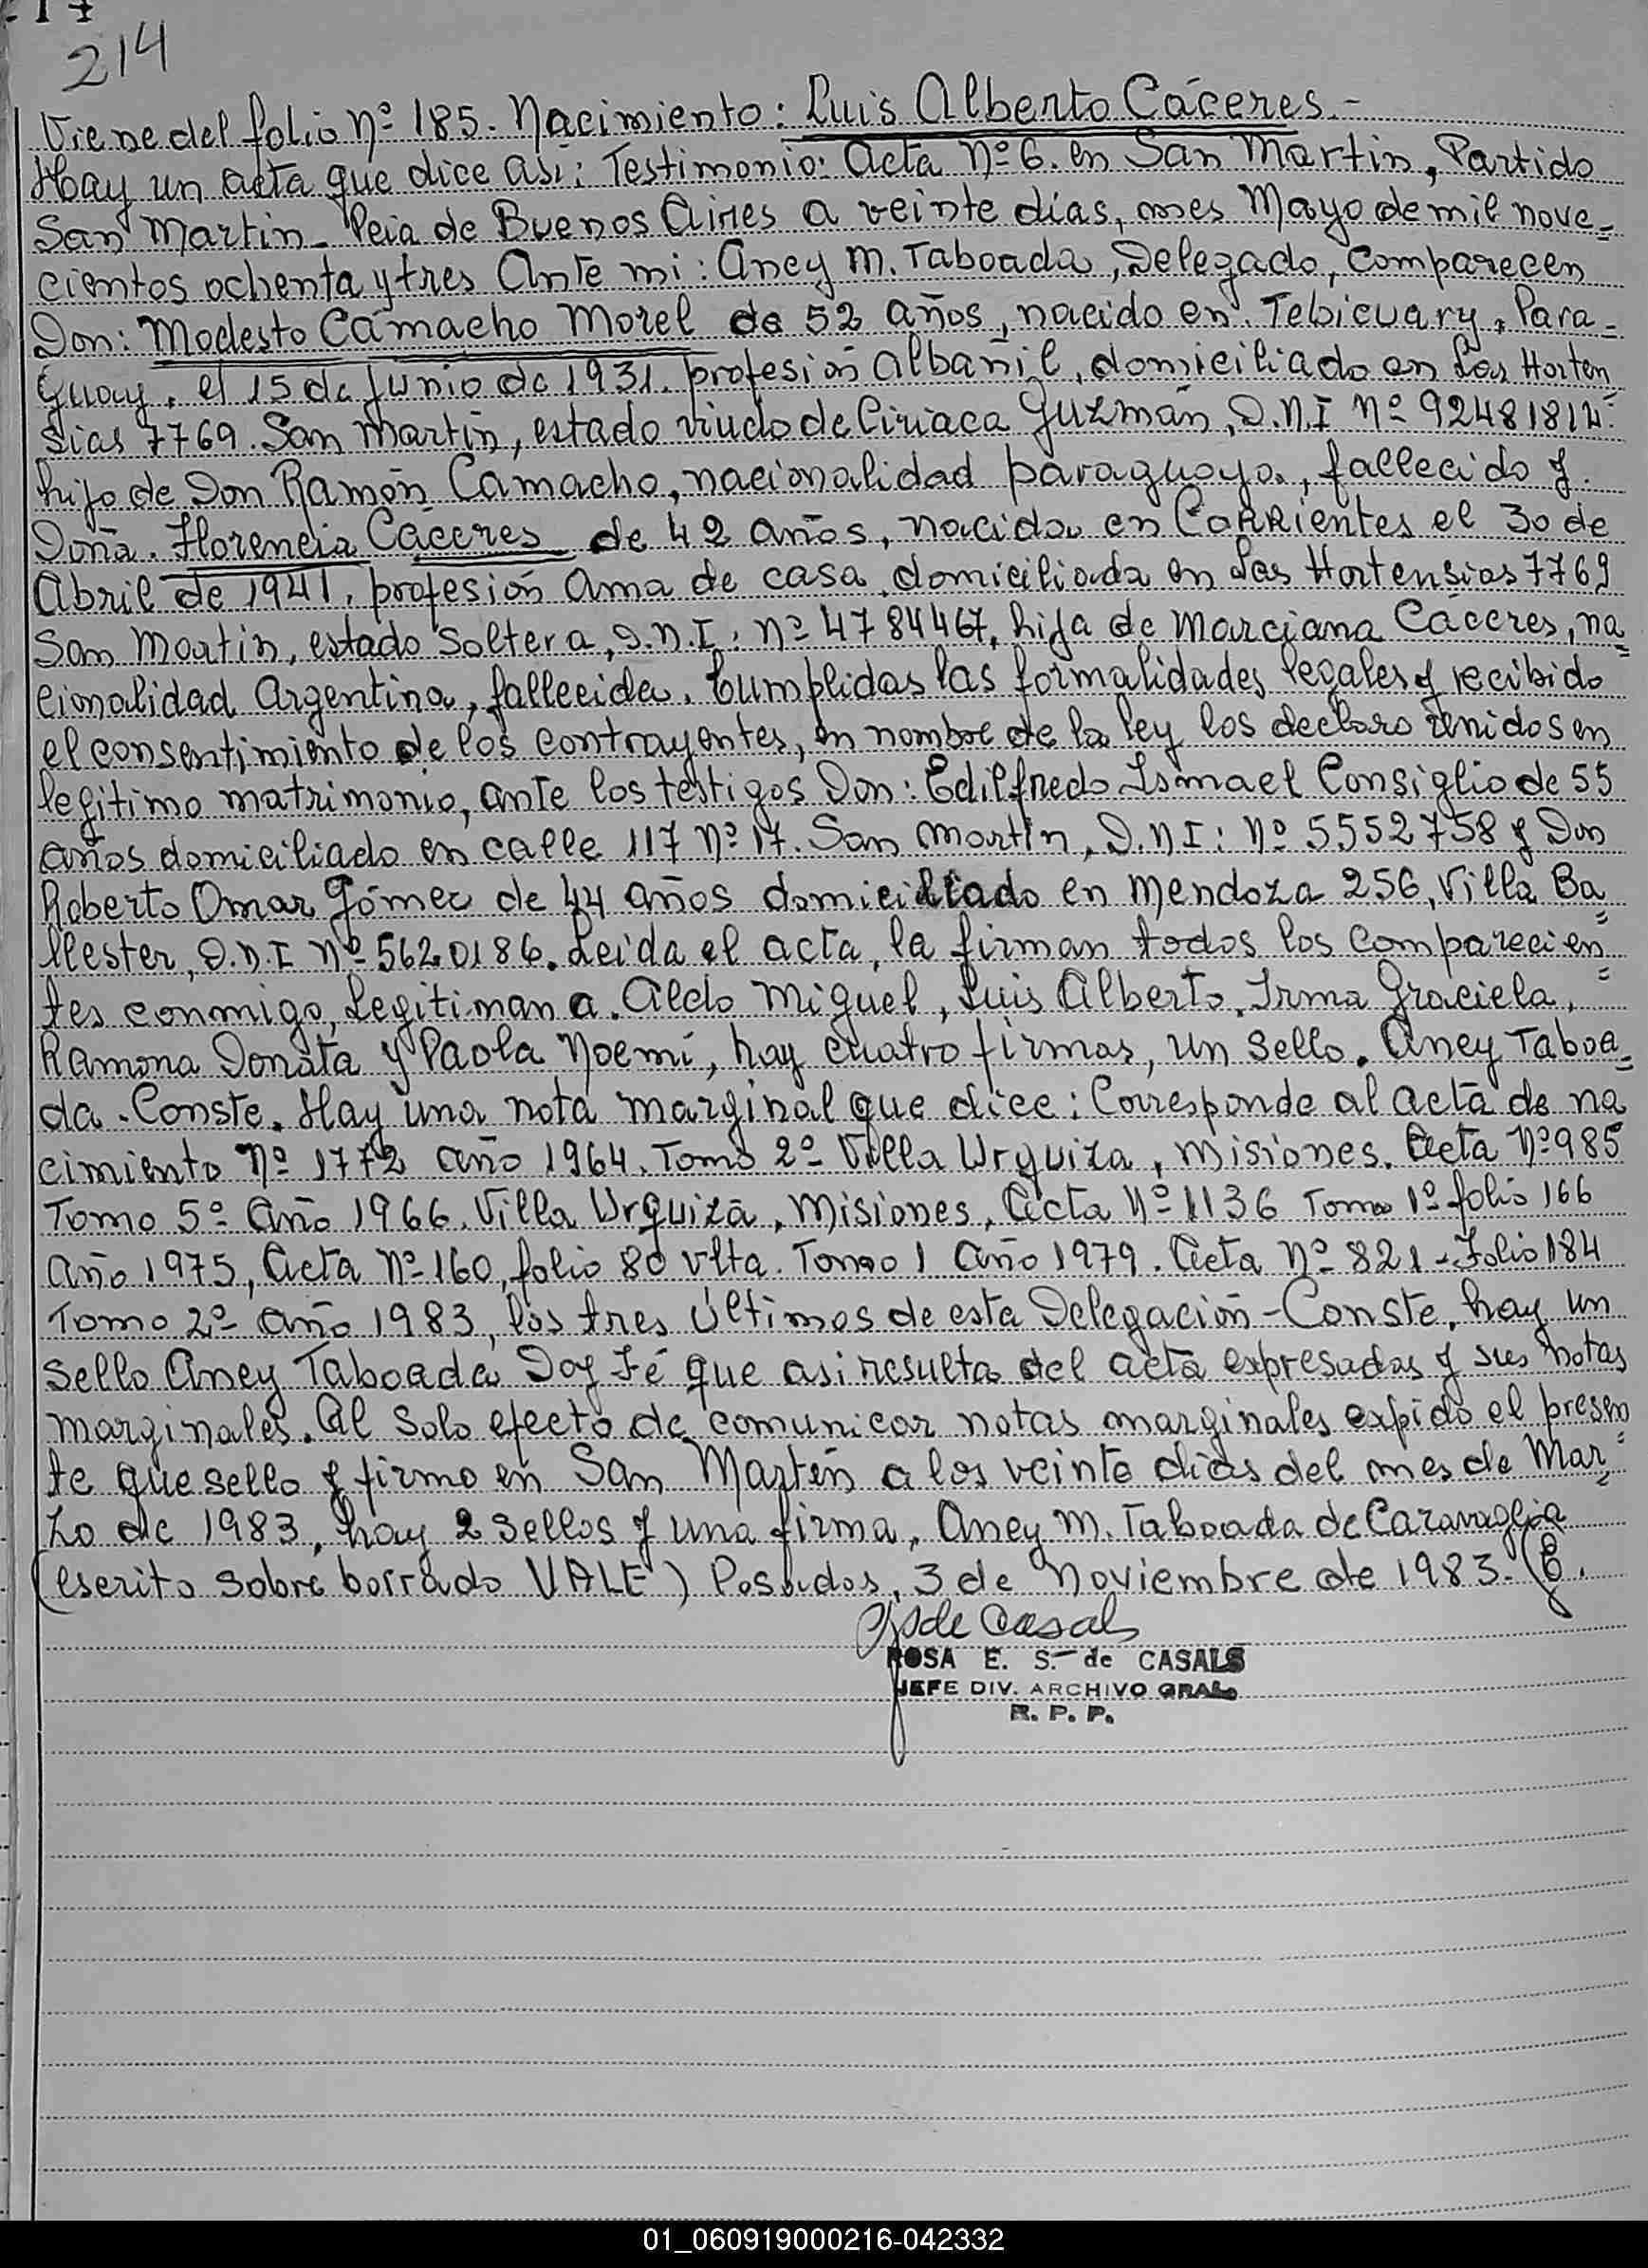 214
Viene del folio Nº 185. Nacimiento: Luis Alberto Cáceres.-
Hay un acta que dice así: Testimonio: Acta Nº 6. en San Martin, Partido
San Martin - Pcia de Buenos Aires a veinte días, mes Mayo de mil nove=
cientos ochenta y tres Ante mi: Aney M. Taboada, Delegado, Comparecen
Don: Modesto Camacho Morel de 52 años, nacido en Tebicuary, Para-
guay, el 15 de Junio de 1931. profesión albañil, domiciliado en Las Horten
sias 7769. San Martin, estado viudo de Ciriaca Guzmán, D.N.I Nº 92481812
hijo de Don Ramón Camacho, nacionalidad paraguaya, fallecido y
Doña. Florencia Cáceres de 42 años, nacida en Corrientes el 30 de
Abril de 1941, profesión Ama de casa, domiciliada en Las Hortensias 7769
San Martin, estado soltera, D.N.I: Nº 4784467, hija de Marciana Cáceres, na=
cionalidad Argentina, fallecida. Cumplidas las formalidades legales y recibido
el consentimiento de los contrayentes, en nombre de la ley los declaro unidos en
legítimo matrimonio, ante los testigos Don: Edilfredo Ismael Consiglio de 55
años domiciliado en calle 117 Nº 17. San Martin, D.N.I: Nº 5552758 y Don
Roberto Omar Gómez de 44 años domiciliado en Mendoza 256, Villa Ba=
llester, D.N.I Nº 5620186. Leida el acta, la firman todos los comparecien=
tes conmigo, Legitiman a. Aldo Miguel, Luis Alberto, Irma Graciela,
Ramona Donata y Paola Noemí, hay cuatro firmas, un sello. Aney Taboa=
da. Conste. Hay una nota marginal que dice: Corresponde al acta de na
cimiento Nº 1772 año 1964. Tomo 2º Villa Urquiza, Misiones. Acta Nº 985
Tomo 5º Año 1966. Villa Urquiza, Misiones, Acta Nº 1136 Tomo 1º folio 166
año 1975, Acta Nº 160, folio 80 vlta. Tomo 1 Año 1979. Acta Nº 821 - Folio 184
Tomo 2º Año 1983, los tres últimos de esta Delegación - Conste, hay un
sello Aney Taboada Doy Fé que asi resulta del acta expresadas y sus notas
marginales. Al solo efecto de comunicar notas marginales expido el presen
te que sello y firmo en San Martín a los veinte días del mes de Mar=
zo de 1983, hay 2 sellos y una firma, Aney M. Taboada de Caravaglia
(escrito sobre borrado VALE) Posadas, 3 de Noviembre de 1983.
de Casals
ROSA E. S. de CASALS
JEFE DIV. ARCHIVO GRAL.
R. P. P.
01_060919000216-042332